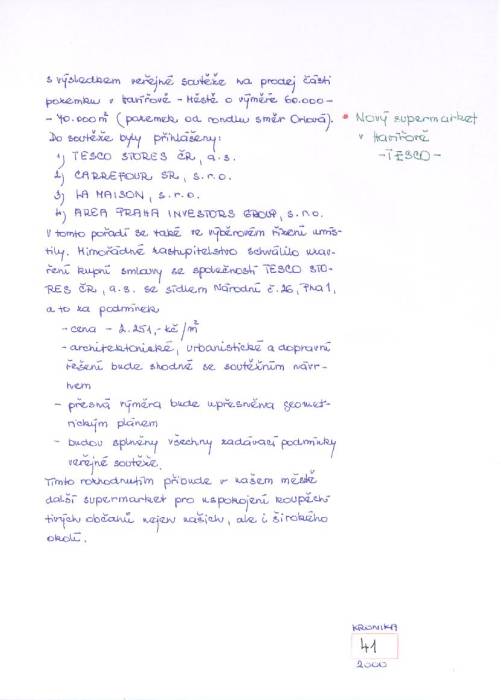 s výsledkem veřejné soutěže na prodej části
pozemku v Havířově - Městě o výměře 60.000 -
- 70.000 m² (pozemek od rondlu směr Orlová).
• Nový supermarket
v Havířově
- TESCO -
Do soutěže byly přihlášeny:
1) TESCO STORES ČR, a.s.
2) CARREFOUR SR, s.r.o.
3) LA MAISON, s.r.o.
4) AREA PRAHA INVESTORS GROUP, s.r.o.
V tomto pořadí se také ve výběrovém řízení umís-
tily. Mimořádné zastupitelstvo schválilo uzav-
ření kupní smlouvy se společností TESCO STO-
RES ČR, a.s. se sídlem Národní č.26, Pha 1,
a to za podmínek
- cena - 2.251,- kč/m²
- architektonické, urbanistické a dopravní
řešení bude shodné se soutěžním návr-
hem
- přesná výměra bude upřesněna geomet-
rickým plánem
- budou splněny všechny zadávací podmínky
veřejné soutěže.
Tímto rozhodnutím přibude v našem městě
další supermarket pro uspokojení koupěch-
tivých občanů nejen našich, ale i širokého
okolí.
KRONIKA
41
2000